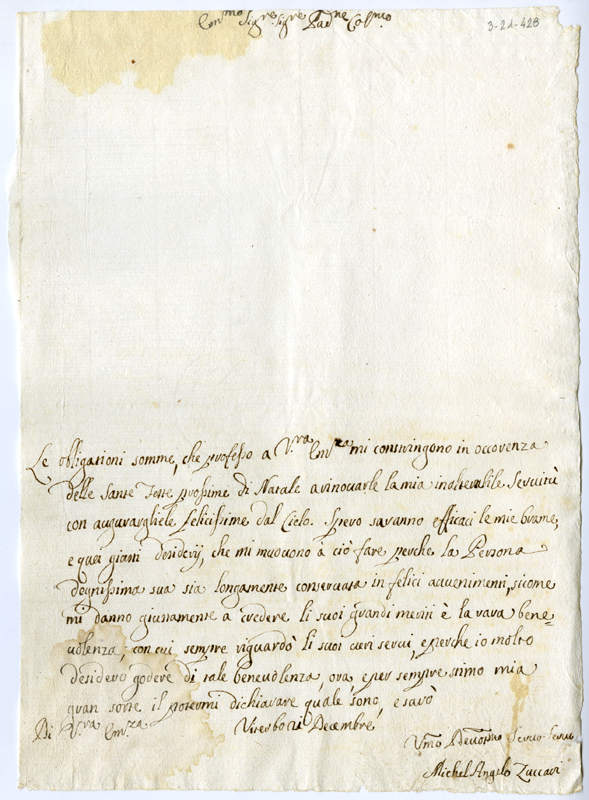 Em.mo Sig.re Sig.re Pad.ne Col.mo
3-21-428
Le obligationi somme, che professo a V.ra Em.za mi constringono in occorenza
delle Sante Feste prossime di Natale a rinovarle la mia inalterabile Servitù
con augurargliele felicissime dal Cielo. Spero saranno efficaci le mie brame,
e quei giusti desiderij, che mi muovono à ciò fare perche la Persona
Degnissima sua sia longamente conservata in felici avvenimenti, sicome
mi danno giustamente a credere li suoi grandi meriti è la rara bene=
volenza, con cui sempre riguardò li suoi veri servi, e perche io molto
desidero godere di tale benevolenza, ora, e per sempre stimo mia
gran sorte il potermi dichiarare quale sono, e sarò
Di V.ra Em.za Viterbo 21 Decembre
Um.o Devotis.mo Servo
Michel Angelo Zuccari